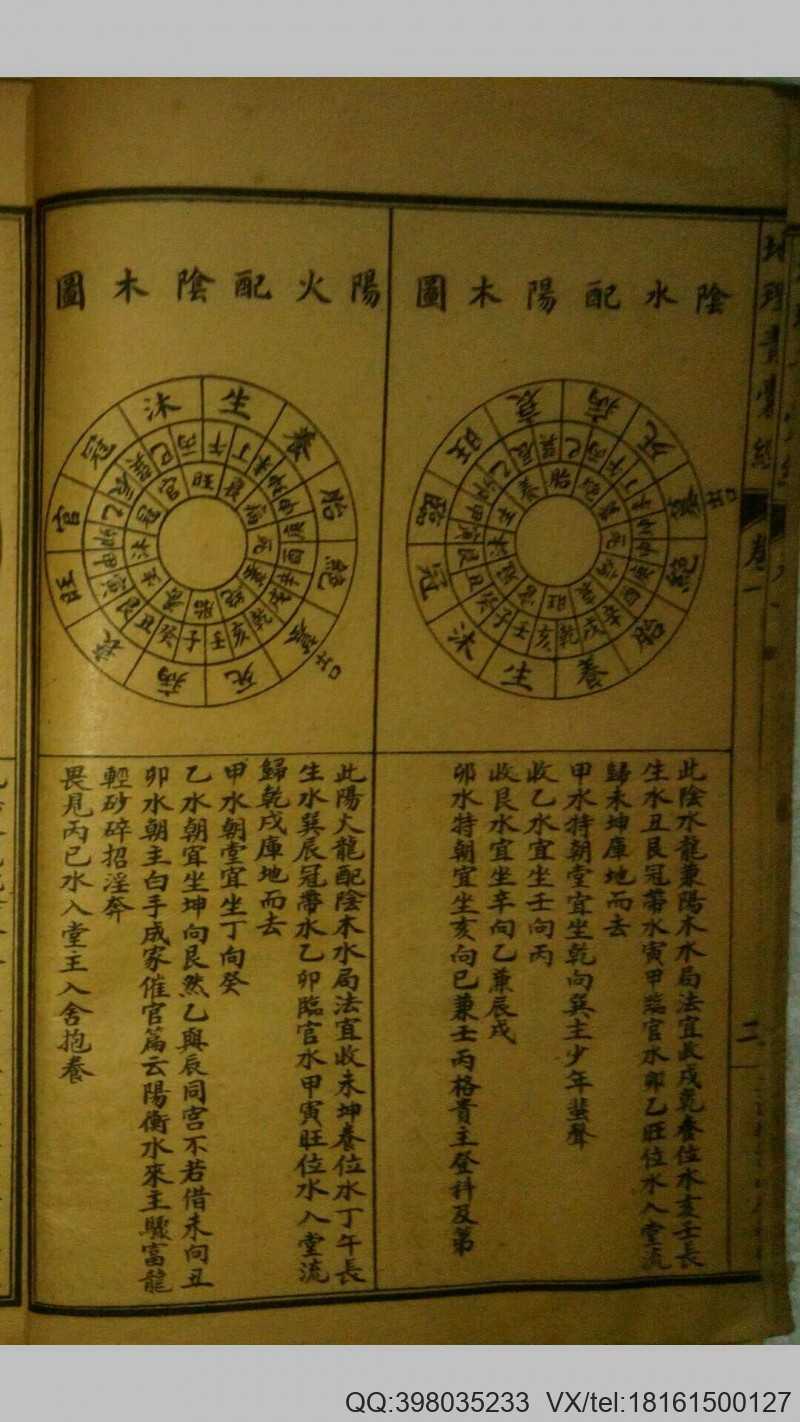 陰水配陽木圖
此陰水龍兼陽木水局法宜收戌乾養位水亥壬長
生水丑艮冠帶水寅甲臨官水卯乙旺位水入堂流
歸未坤庫地而去
甲水特朝堂宜坐乾向巽主少年蜚聲
收乙水宜坐壬向丙
收艮水宜坐辛向乙兼辰戌
卯水特朝宜坐亥向巳兼壬丙格貴主登科及第
陽火配陰木圖
此陽火龍配陰木水局法宜收未坤養位水丁午長
生水巽辰冠帶水乙卯臨官水甲寅旺位水入堂流
歸乾戌庫地而去
甲水朝堂宜坐丁向癸
乙水朝宜坐坤向艮然乙與辰同宮不若借未向丑
卯水朝主白手成家催官篇云陽衡水來主驟富龍
輕砂碎招淫奔
畏見丙巳水入堂主入舍抱養
生
養
胎
絕
墓
死
病
衰
旺
官
冠
沐
病
死
墓
絕
胎
養
生
沐
冠
臨
旺
衰
卷一
二
QQ:398035233 VX/tel:18161500127